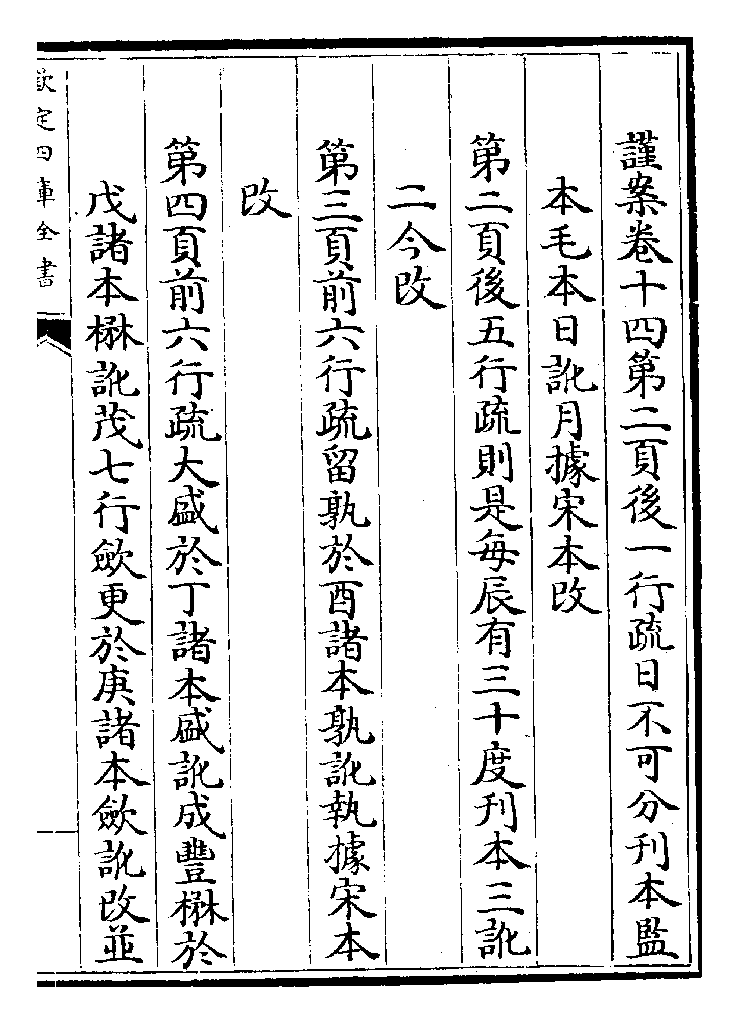 謹案卷十四第二頁後一行疏日不可分刊本監
本毛本日訛月據宋本改
第二頁後五行疏則是每辰有三十度刊本三訛
二今改
第三頁前六行疏留孰於酉諸本孰訛執據宋本
改
第四頁前六行疏大盛於丁諸本盛訛成豐楙於
戊諸本楙訛茂七行斂更於庚諸本斂訛改並
欽定四庫全書